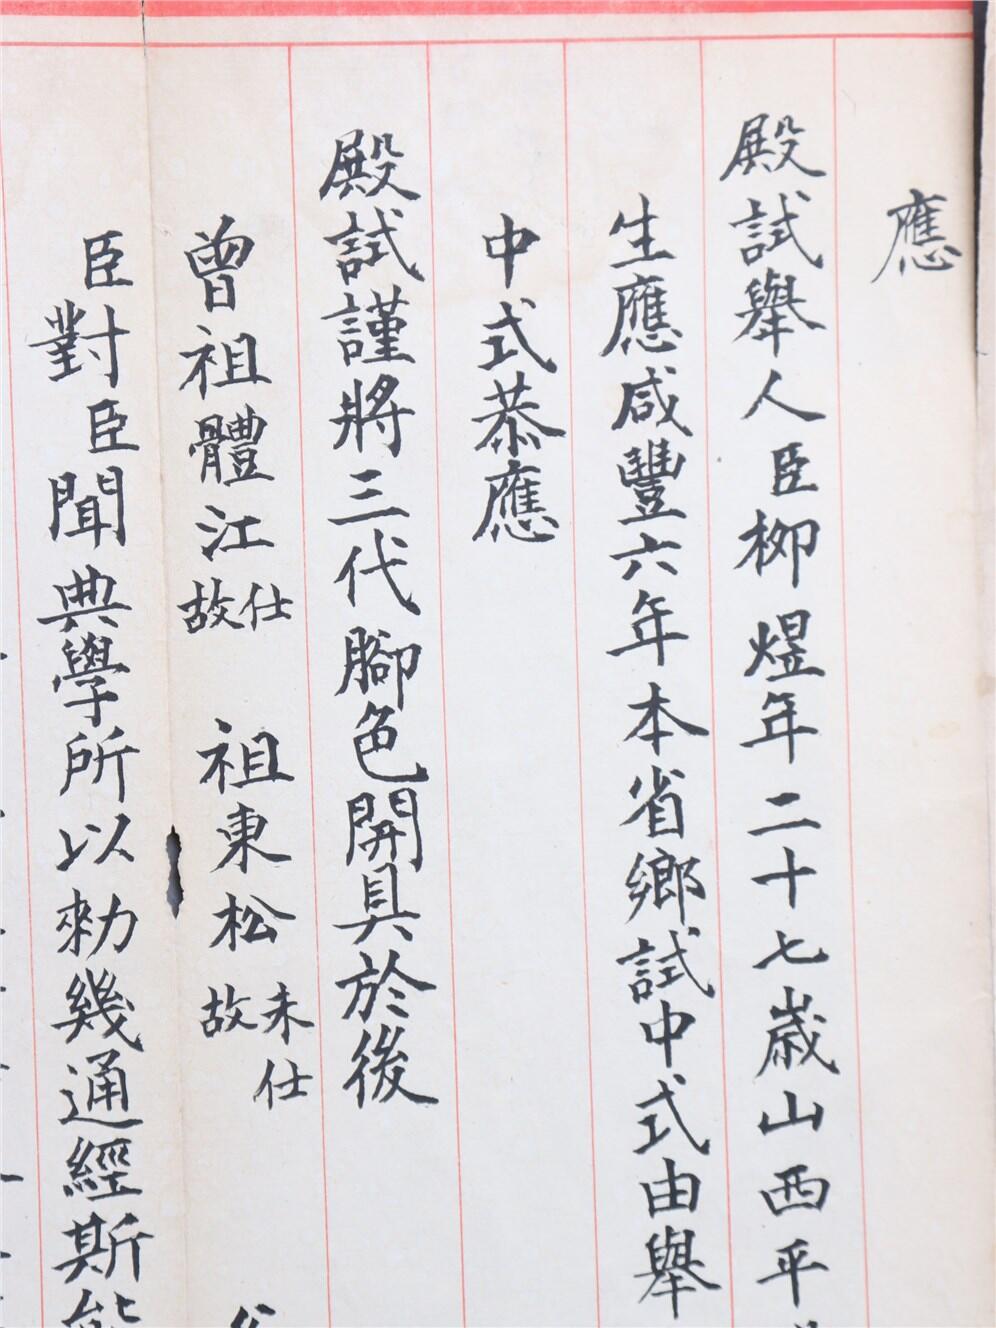 應
殿試舉人臣柳煜年二十七歲山西平
生應咸豐六年本省鄉試中式由舉
中式恭應
殿試謹將三代腳色開具於後
曾祖體江仕故 祖東松未仕故
臣對臣聞典學所以勑幾通經斯